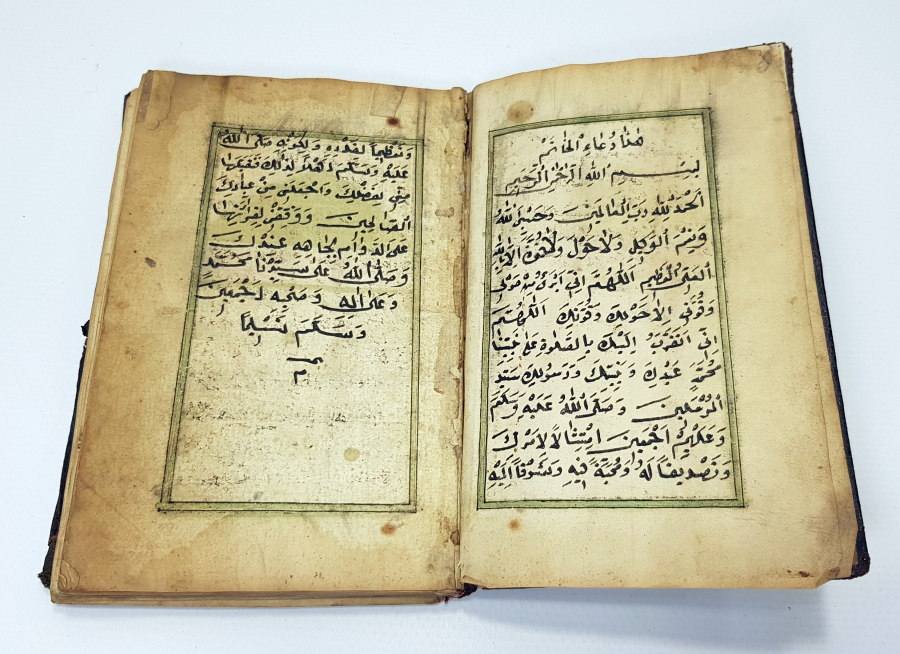 هٰذا دُعَاءِ الْخَاتَمْ
بِسْمِ اللهِ الرَّحْمٰنِ الرَّحِيمِ
اَلْحَمْدُ لِلّٰهِ رَبِّ الْعَالَمِينَ وَحَسْبِيَ اللهُ
وَنِعْمَ الْوَكِيلُ وَلَا حَوْلَ وَلَا قُوَّةَ اِلَّا بِاللهِ
الْعَلِيِّ الْعَظِيمِ اَللّٰهُمَّ اِنِّي اَبْرَئُ مِنْ حَوْلِي
وَقُوَّتِي اِلَى حَوْلِكَ وَقُوَّتِكَ اَللّٰهُمَّ
اِنِّي اَتَقَرَّبُ اِلَيْكَ بِالصَّلٰوةِ عَلَى نَبِيِّنَا
مُحَمَّدٍ عَبْدِكَ وَنَبِيِّكَ وَرَسُولِكَ سَيِّدِ
الْمُرْسَلِينَ وَصَلَّى اللهُ عَلَيْهِ وَسَلَّمَ
وَعَلَيْهِمْ اَجْمَعِينَ اِمْتِثَالًا لِاَمْرِكَ
وَتَصْدِيقًا لَهُ وَمَحَبَّةً فِيهِ وَشَوْقًا اِلَيْهِ
وَتَعْظِيمًا لِقَدْرِهِ وَلِكَوْنِهِ صَلَّى اللهُ
عَلَيْهِ وَسَلَّمَ اَهْلًا لِذٰلِكَ فَتَقَبَّلْهَا
مِنِّي بِفَضْلِكَ وَاجْعَلْنِي مِنْ عِبَادِكَ
الصَّالِحِينَ وَوَفِّقْنِي لِقِرَائَتِهَا
عَلَى الدَّوَامِ بِجَاهِهِ عِنْدَكَ
وَصَلَّى اللهُ عَلَى سَيِّدِنَا مُحَمَّدٍ
وَعَلَى اٰلِهِ وَصَحْبِهِ اَجْمَعِينَ
وَسَلَّمَ تَسْلِيمًا